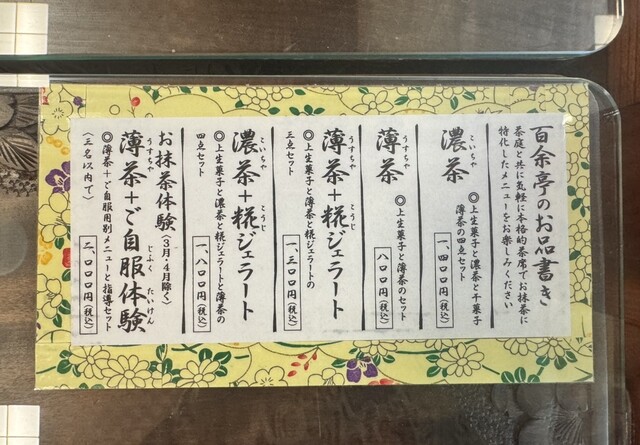 百余亭のお品書き
茶庭と共に気軽に本格的茶席でお抹茶に
特化したメニューをお楽しみください
こいちゃ
濃茶
◎上生菓子と濃茶と干菓子
薄茶の四点セット
一、四〇〇円(税込)
うすちゃ
薄茶
◎上生菓子と薄茶のセット
八〇〇円(税込)
うすちゃ こうじ
薄茶+糀ジェラート
◎上生菓子と薄茶と糀ジェラートの
三点セット
一、三〇〇円(税込)
こいちゃ こうじ
濃茶+糀ジェラート
◎上生菓子と濃茶と糀ジェラートと薄茶の
四点セット
一、八〇〇円(税込)
お抹茶体験(3月・4月除く)
うすちゃ じふく たいけん
薄茶+ご自服体験
◎薄茶+ご自服用別メニューと指導セット
(三名以内で)
二、〇〇〇円(税込)